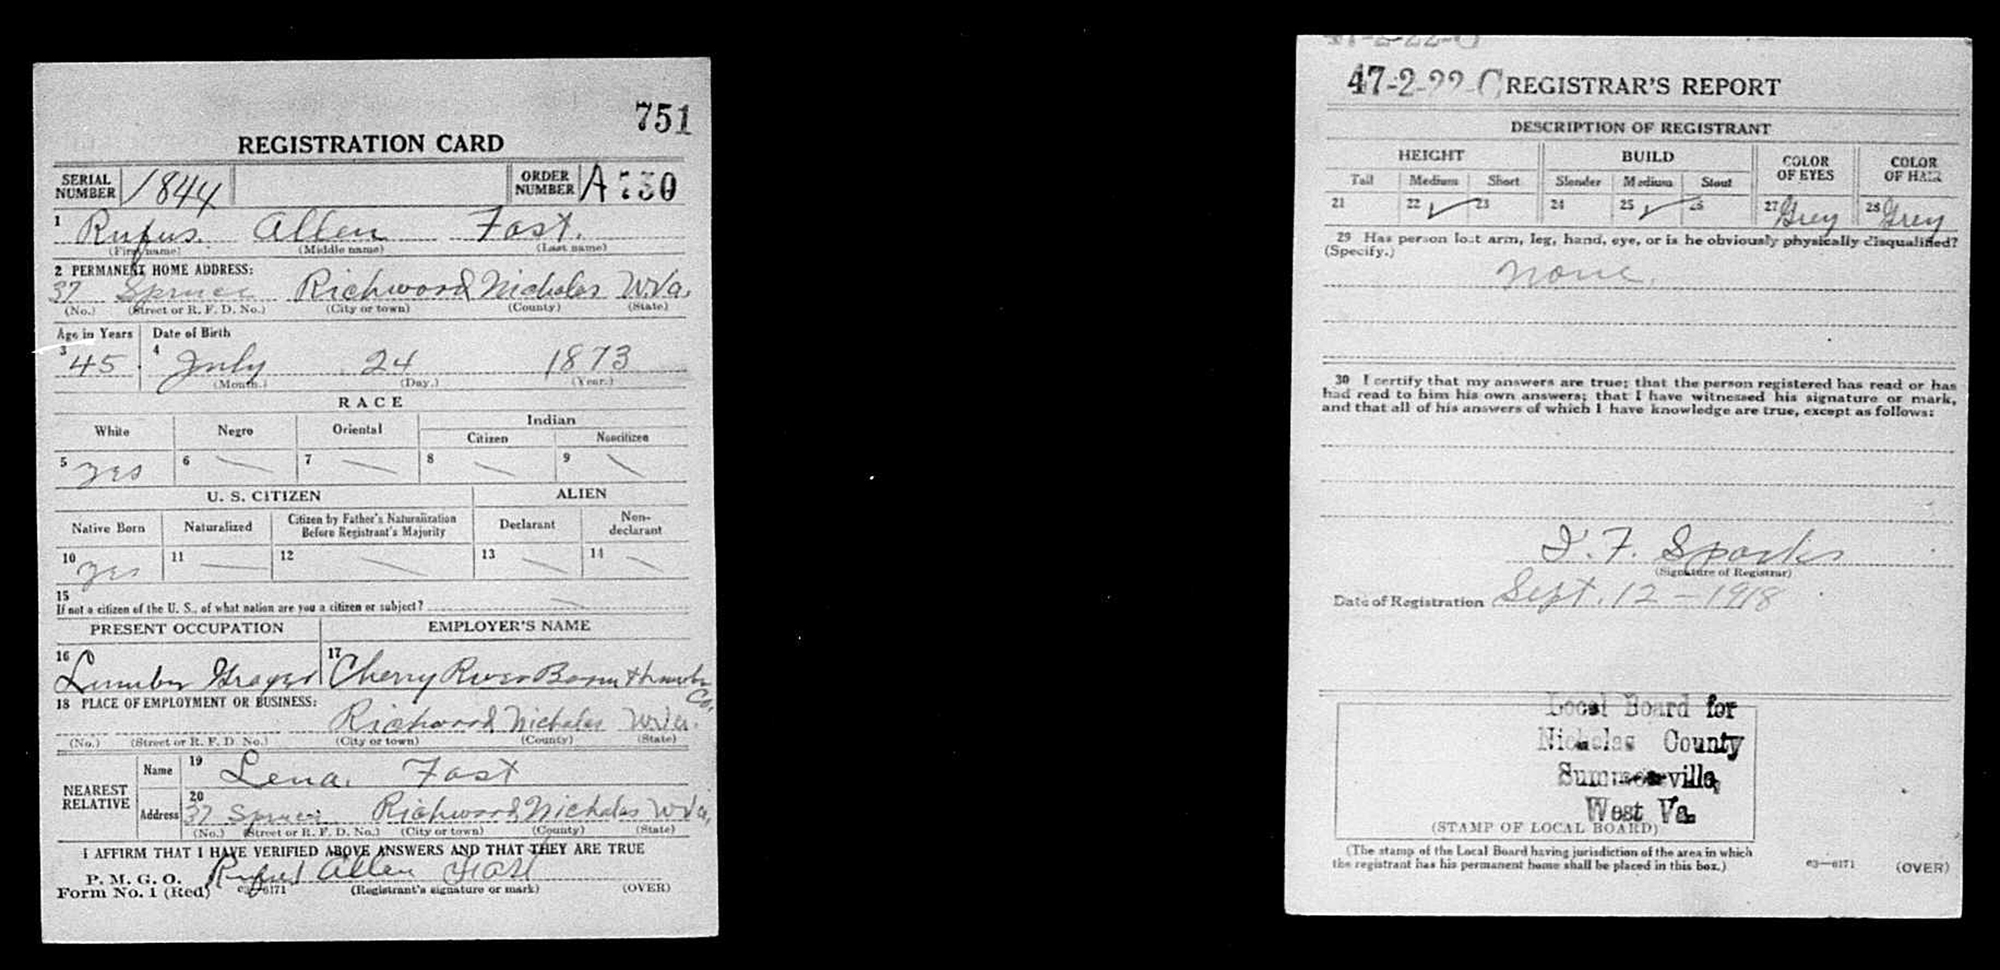 751
REGISTRATION CARD
SERIAL NUMBER 1844 ORDER NUMBER A 730
1 Rufus Allen Fast.
(First name) (Middle name) (Last name)
2 PERMANENT HOME ADDRESS:
37 Spruce Richwood Nicholas W.Va.
(No.) (Street or R. F. D. No.) (City or town) (County) (State)
Age in Years Date of Birth
3 45 4 July 24 1873
(Month.) (Day.) (Year.)
RACE
White Negro Oriental Indian
Citizen Noncitizen
5 yes 6 7 8 9
U. S. CITIZEN ALIEN
Native Born Naturalized Citizen by Father's Naturalization Before Registrant's Majority Declarant Non-declarant
10 yes 11 12 13 14
15
If not a citizen of the U. S., of what nation are you a citizen or subject?
PRESENT OCCUPATION EMPLOYER'S NAME
16 Lumber 17 Cherry River Boom & Lumber Co.
18 PLACE OF EMPLOYMENT OR BUSINESS:
Richwood Nicholas W.Va.
(No.) (Street or R. F. D. No.) (City or town) (County) (State)
NEAREST RELATIVE
Name 19 Lena. Fast
Address 20 37 Spruce Richwood Nicholas W.Va.
(No.) (Street or R. F. D. No.) (City or town) (County) (State)
I AFFIRM THAT I HAVE VERIFIED ABOVE ANSWERS AND THAT THEY ARE TRUE
P. M. G. O.
Form No. 1 (Red) c3—6171 Rufus Allen Fast
(Registrant's signature or mark) (OVER)
47-2-22-C REGISTRAR'S REPORT
DESCRIPTION OF REGISTRANT
HEIGHT BUILD COLOR OF EYES COLOR OF HAIR
Tall Medium Short Slender Medium Stout
21 22 ✓ 23 24 25 ✓ 26 27 Grey 28 Grey
29 Has person lost arm, leg, hand, eye, or is he obviously physically disqualified?
(Specify.)
none.
30 I certify that my answers are true; that the person registered has read or has
had read to him his own answers; that I have witnessed his signature or mark,
and that all of his answers of which I have knowledge are true, except as follows:
F. Sparks
(Signature of Registrar)
Date of Registration Sept. 12 - 1918
Local Board for
Nicholas County
Summersville,
West Va.
(STAMP OF LOCAL BOARD)
(The stamp of the Local Board having jurisdiction of the area in which
the registrant has his permanent home shall be placed in this box.)
c3—6171 (OVER)